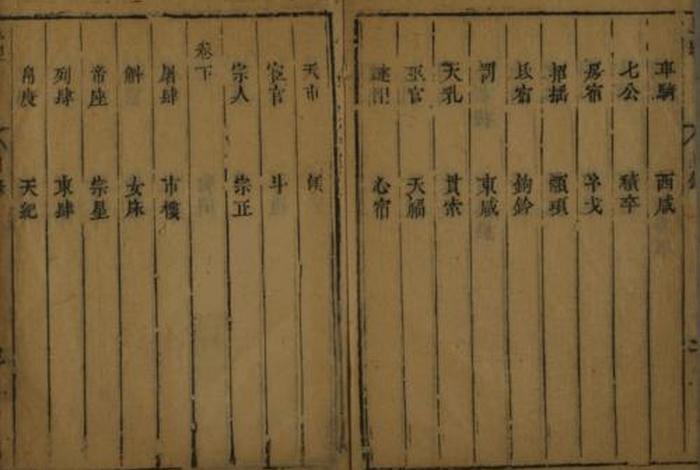 車騎 西咸
七公 積卒
房宿
招搖 顓頊
氐宿 鉤鈐
罰 東咸
天乳 貫索
巫官 天福
心宿
天市 候
宦官 斗
宗人 宗正
卷下
屠肆 市樓
斛 女床
帝座 宗星
列肆 車肆
帛度 天紀